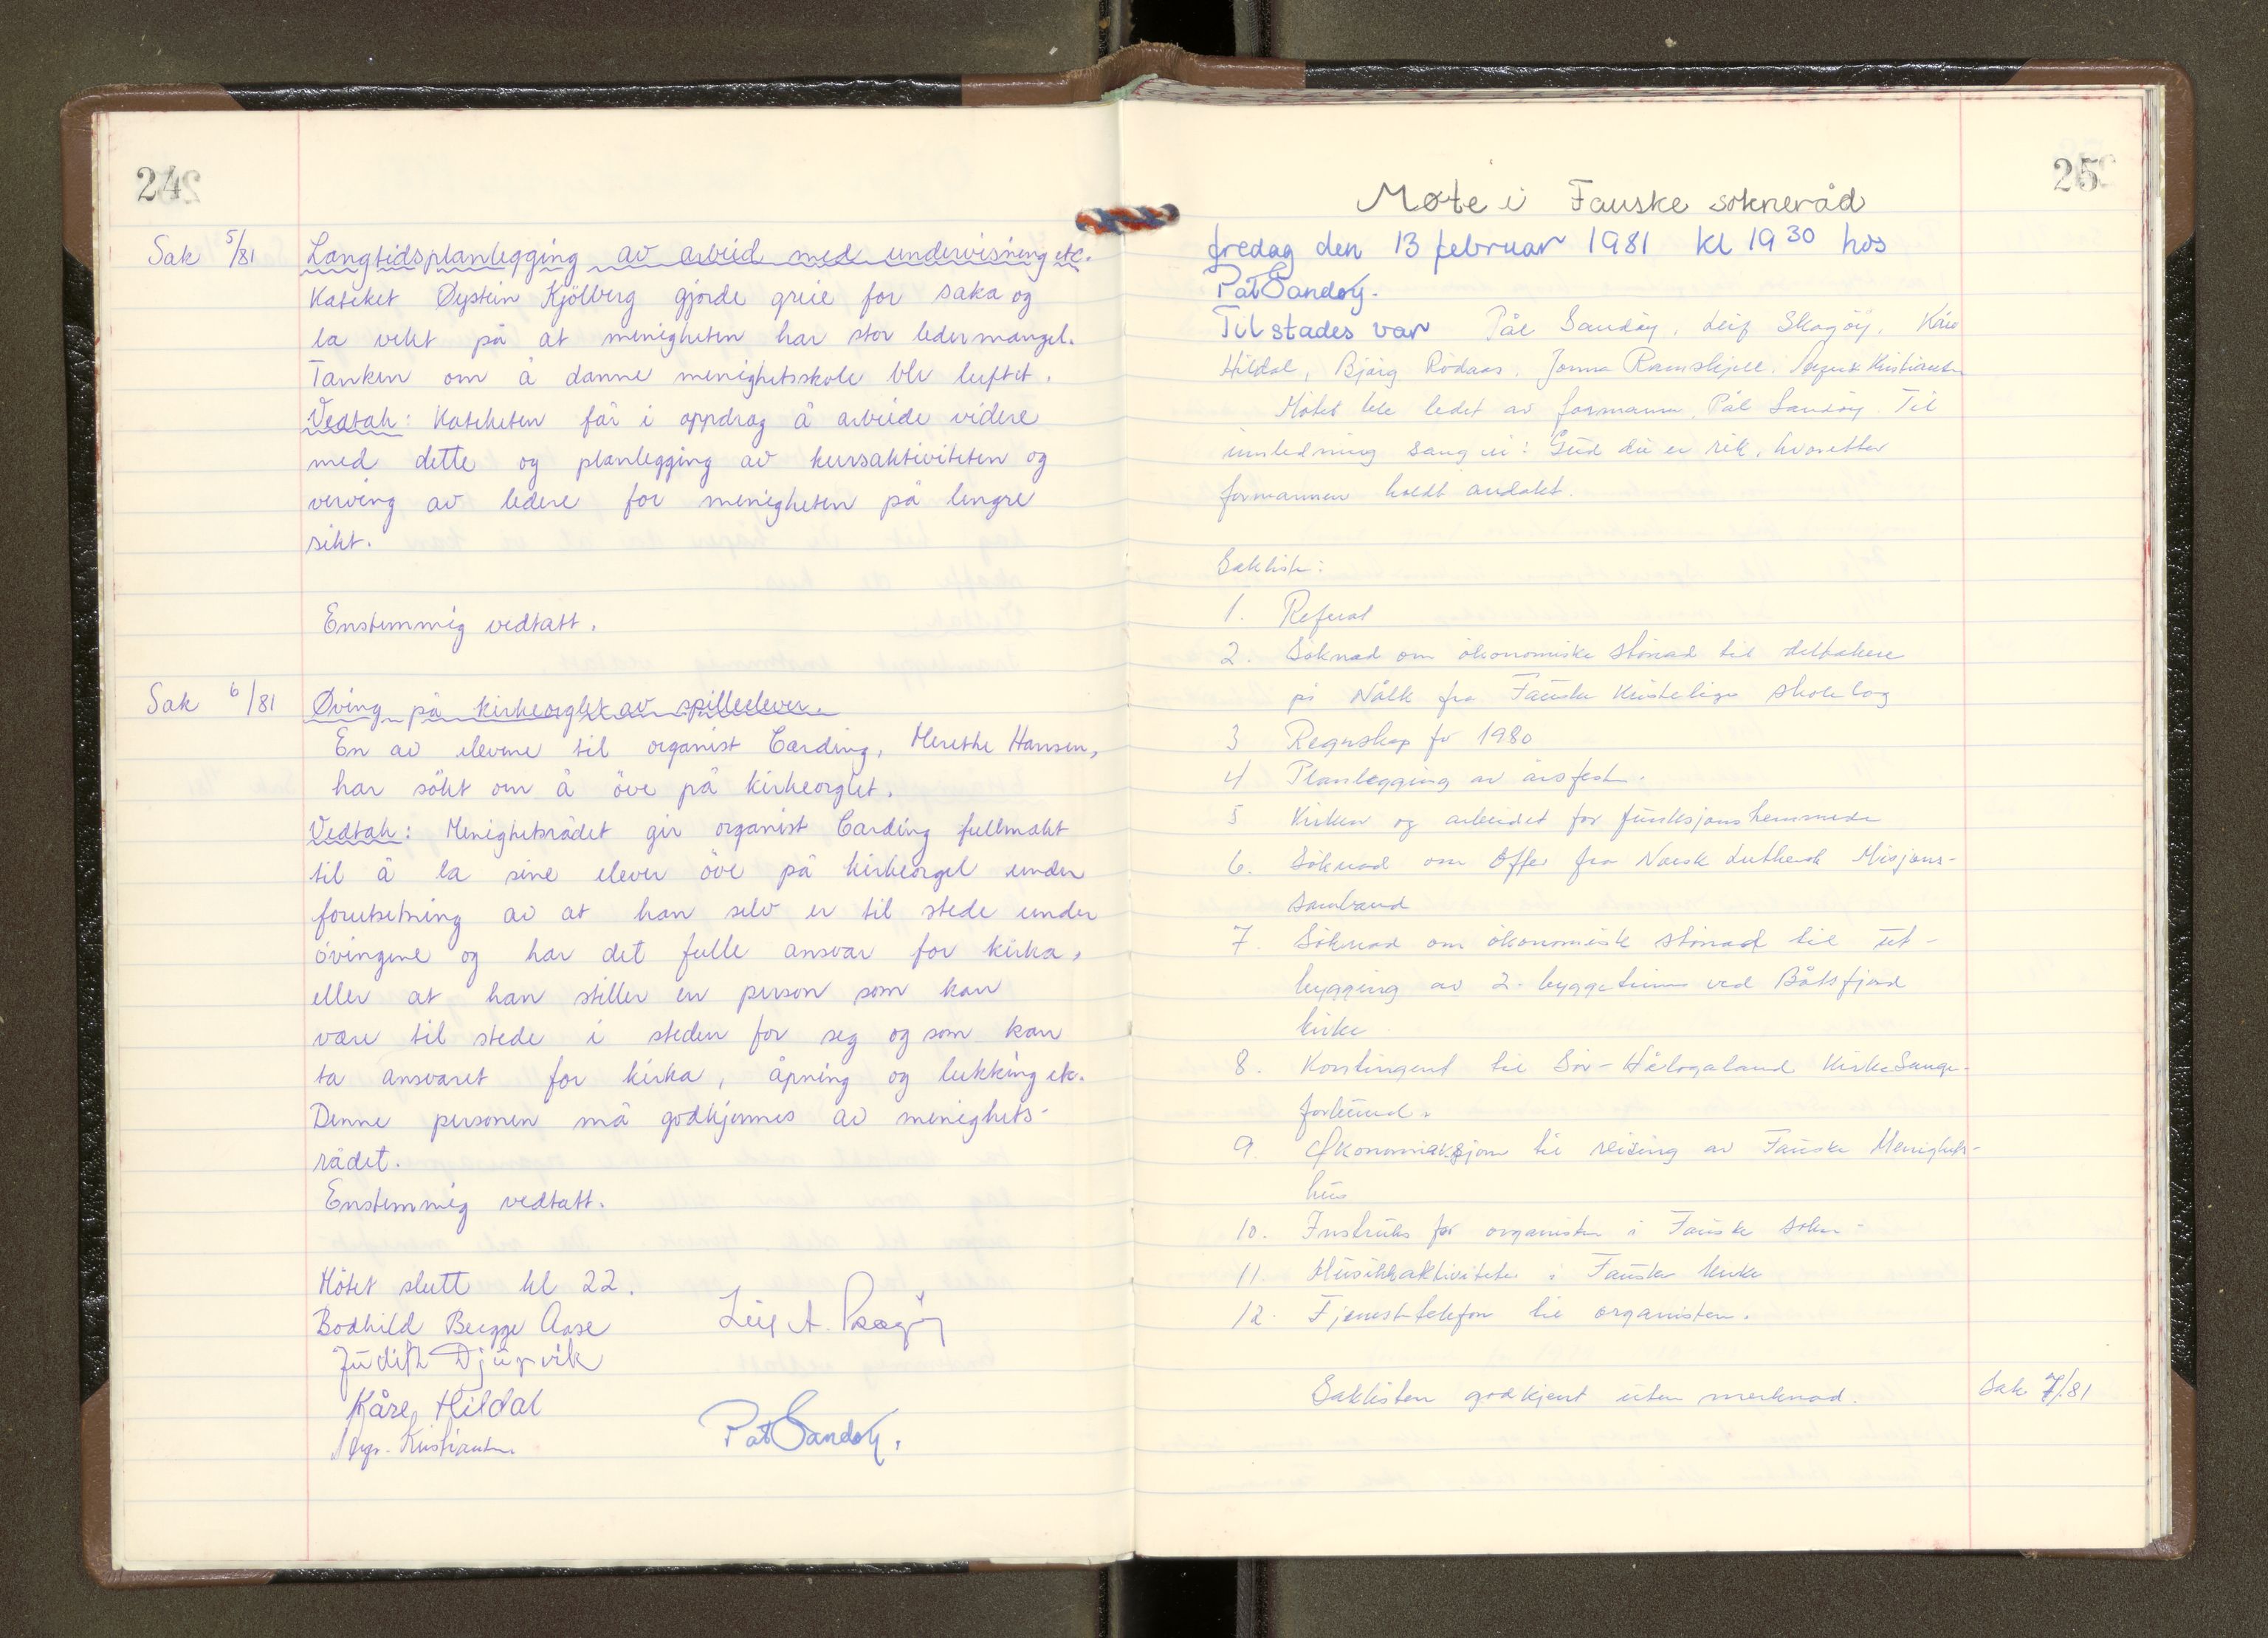 24
Sak 5/81 Langtidsplanlegging av arbeid med undervisning etc.
Kateket Øystein Kjölberg gjorde greie for saka og
la vekt på at menigheten har stor ledermangel.
Tanken om å danne menighetsskole ble luftet.
Vedtak: Kateketen får i oppdrag å arbeide videre
med dette og planlegging av kursaktiviteten og
verving av ledere for menigheten på lengre
sikt.
Enstemmig vedtatt.
Sak 6/81 Øving på kirkeorglet av spilleelever.
En av elevene til organist Carding, Merethe Hansen,
har sökt om å öve på kirkeorglet.
Vedtak: Menighetsrådet gir organist Carding fullmakt
til å la sine elever öve på kirkeorgel under
forutsetning av at han selv er til stede under
övingene og har det fulle ansvar for kirka,
eller at han stiller en person som kan
være til stede i steden for seg og som kan
ta ansvaret for kirka, åpning og lukking etc.
Denne personen må godkjennes av menighets-
rådet.
Enstemmig vedtatt.
Mötet slutt kl 22.
Bodhild Bugge Aase
Leif A. Skagöy
Judith Djupvik
Kåre Hildal
Pål Sandöy.
Aug. Kristiansen
25
Møte i Fauske sokneråd
fredag den 13 februar 1981 kl 19 30 hos
Pål Sandöy.
Tilstades var Pål Sandöy, Leif Skagöy, Kåre
Hildal, Bjårg Rödaas, Jonna Ramskjell, August Kristiansen
Mötet ble ledet av formannen Pål Sandöy. Til
innledning sang vi: Gud du er rik, hvoretter
formannen holdt andakt.
Sakliste:
1. Referat
2. Söknad om ökonomiske stönad til deltakere
på Nålk fra Fauske Kristelige skolelag
3 Regnskap for 1980
4 Planlegging av årsfest.
5 Kirken og arbeidet for funksjonshemmede
6. Söknad om Offer fra Norsk Luthersk Misjons-
samband
7. Söknad om ökonomisk stönad til ut-
bygging av 2. byggetrinn ved Båtsfjord
kirke
8. Kontingent til Sör-Hålogaland Kirkesange-
forbund.
9. Økonomiaksjon til reising av Fauske Menighets-
hus
10. Instruks for organisten i Fauske sokn-
11 Musikkaktiviteter i Fauske kirke
12. Tjenestetelefon til organisten.
Saklisten godkjent uten merknad. Sak 7/81